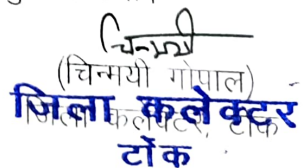 चिन्मयी
(चिन्मयी गोपाल)
जिला कलेक्टर, टोंक
जिला कलेक्टर
टोंक